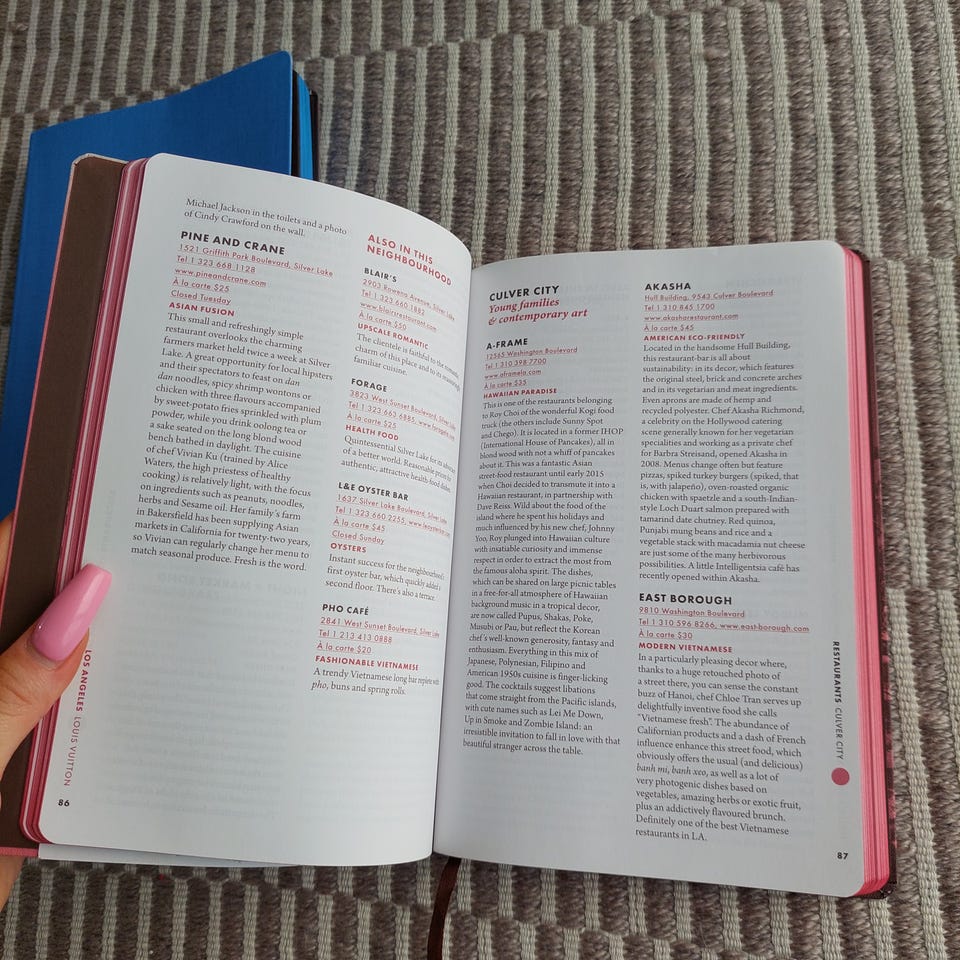 Michael Jackson in the toilets and a photo
of Cindy Crawford on the wall.
PINE AND CRANE
1521 Griffith Park Boulevard, Silver Lake
Tel 1 323 668 1128
www.pineandcrane.com
À la carte $25
Closed Tuesday
ASIAN FUSION
This small and refreshingly simple
restaurant overlooks the charming
farmers market held twice a week at Silver
Lake. A great opportunity for local hipsters
and their spectators to feast on dan
dan noodles, spicy shrimp wontons or
chicken with three flavours, accompanied
by sweet-potato fries sprinkled with plum
powder, while you drink oolong tea or
a sake seated on the long blond wood
bench bathed in daylight. The cuisine
of chef Vivian Ku (trained by Alice
Waters, the high priestess of healthy
cooking) is relatively light, with the focus
on ingredients such as peanuts, noodles,
herbs and Sesame oil. Her family's farm
in Bakersfield has been supplying Asian
markets in California for twenty-two years,
so Vivian can regularly change her menu to
match seasonal produce. Fresh is the word.
ALSO IN THIS
NEIGHBOURHOOD
BLAIR'S
2903 Rowena Avenue, Silver Lake
Tel 1 323 660 1882
www.blairsrestaurant.com
À la carte $50
UPSCALE ROMANTIC
The clientele is faithful to the romantic
charm of this place and to its
familiar cuisine.
FORAGE
3823 West Sunset Boulevard, Silver
Tel 1 323 663 6885,
À la carte $25
HEALTH FOOD
Quintessential Silver Lake for
of a better world. Reasonable prices for
authentic, attractive health-food dishes.
L&E OYSTER BAR
1637 Silver Lake Boulevard, Silver
Tel 1 323 660 2255,
À la carte $45
Closed Sunday
OYSTERS
Instant success for the neighbourhood's
first oyster bar, which quickly added a
second floor. There's also a terrace.
PHO CAFÉ
2841 West Sunset Boulevard, Silver Lake
Tel 1 213 413 0888
À la carte $20
FASHIONABLE VIETNAMESE
A trendy Vietnamese long bar replete with
pho, buns and spring rolls.
LOS ANGELES LOUIS VUITTON
86
CULVER CITY
Young families
& contemporary art
A-FRAME
12565 Washington Boulevard
Tel 1 310 398 7700
www.aframela.com
À la carte $35
HAWAIIAN PARADISE
This is one of the restaurants belonging
to Roy Choi of the wonderful Kogi food
truck (the others include Sunny Spot
and Chego). It is located in a former IHOP
(International House of Pancakes), all in
blond wood with not a whiff of pancakes
about it. This was a fantastic Asian
street-food restaurant until early 2015
when Choi decided to transmute it into a
Hawaiian restaurant, in partnership with
Dave Reiss. Wild about the food of the
island where he spent his holidays and
much influenced by his new chef, Johnny
Yoo, Roy plunged into Hawaiian culture
with insatiable curiosity and immense
respect in order to extract the most from
the famous aloha spirit. The dishes,
which can be shared on large picnic tables
in a free-for-all atmosphere of Hawaiian
background music in a tropical decor,
are now called Pupus, Shakas, Poke,
Musubi or Pau, but reflect the Korean
chef's well-known generosity, fantasy and
enthusiasm. Everything in this mix of
Japanese, Polynesian, Filipino and
American 1950s cuisine is finger-licking
good. The cocktails suggest libations
that come straight from the Pacific islands,
with cute names such as Lei Me Down,
Up in Smoke and Zombie Island: an
irresistible invitation to fall in love with that
beautiful stranger across the table.
AKASHA
Hull Building, 9543 Culver Boulevard
Tel 1 310 845 1700
www.akasharestaurant.com
À la carte $45
AMERICAN ECO-FRIENDLY
Located in the handsome Hull Building,
this restaurant-bar is all about
sustainability: in its decor, which features
the original steel, brick and concrete arches
and in its vegetarian and meat ingredients.
Even aprons are made of hemp and
recycled polyester. Chef Akasha Richmond,
a celebrity on the Hollywood catering
scene generally known for her vegetarian
specialities and working as a private chef
for Barbra Streisand, opened Akasha in
2008. Menus change often but feature
pizzas, spiked turkey burgers (spiked, that
is, with jalapeño), oven-roasted organic
chicken with spaetzle and a south-Indian-
style Loch Duart salmon prepared with
tamarind date chutney. Red quinoa,
Punjabi mung beans and rice and a
vegetable stack with macadamia nut cheese
are just some of the many herbivorous
possibilities. A little Intelligentsia café has
recently opened within Akasha.
EAST BOROUGH
9810 Washington Boulevard
Tel 1 310 596 8266, www.east-borough.com
À la carte $30
MODERN VIETNAMESE
In a particularly pleasing decor where,
thanks to a huge retouched photo of
a street there, you can sense the constant
buzz of Hanoi, chef Chloe Tran serves up
delightfully inventive food she calls
"Vietnamese fresh". The abundance of
Californian products and a dash of French
influence enhance this street food, which
obviously offers the usual (and delicious)
banh mi, banh xeo, as well as a lot of
very photogenic dishes based on
vegetables, amazing herbs or exotic fruit,
plus an addictively flavoured brunch.
Definitely one of the best Vietnamese
restaurants in LA.
RESTAURANTS CULVER CITY
87